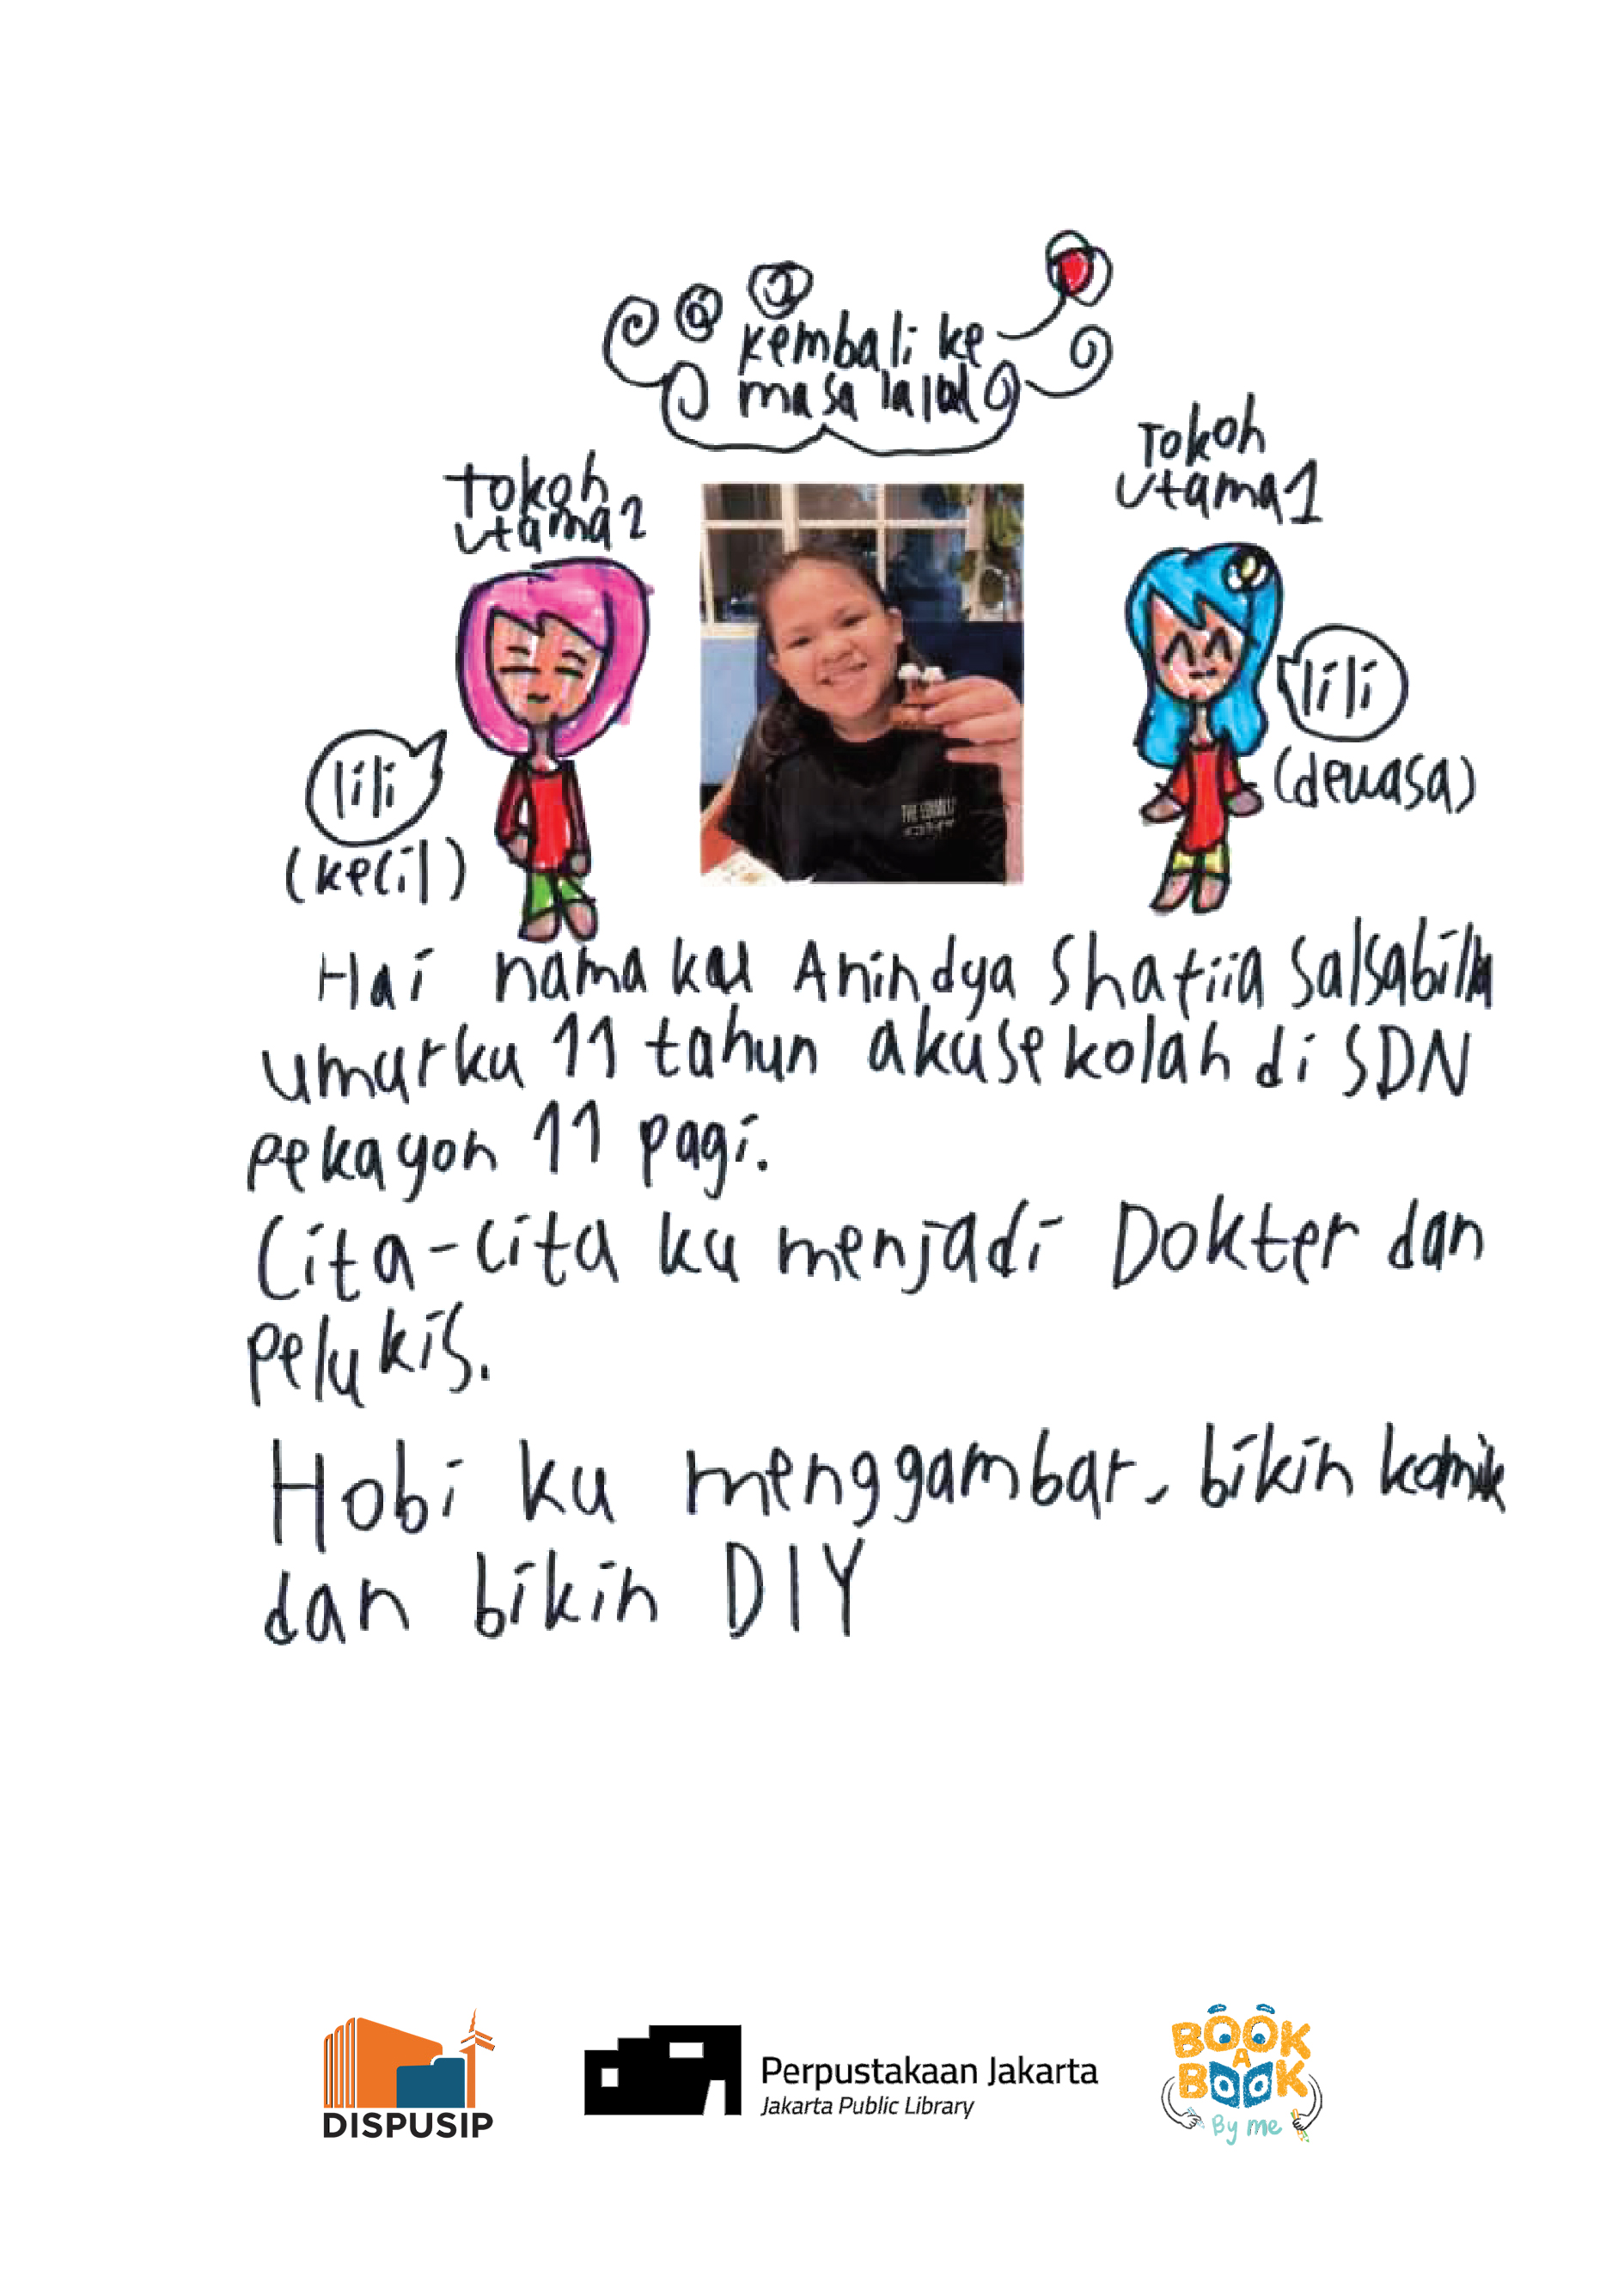 kembali ke
masa lalu
Tokoh
utama 1
tokoh
utama 2
lili
(dewasa)
lili
(kecil)
THE
Hai nama ku Anindya Shafiia Salsabilla
umurku 11 tahun aku sekolah di SDN
pekayon 11 pagi.
Cita-cita ku menjadi Dokter dan
pelukis.
Hobi ku menggambar, bikin komik
dan bikin DIY
DISPUSIP
Perpustakaan Jakarta
Jakarta Public Library
BOOK
A
BOOK
By me